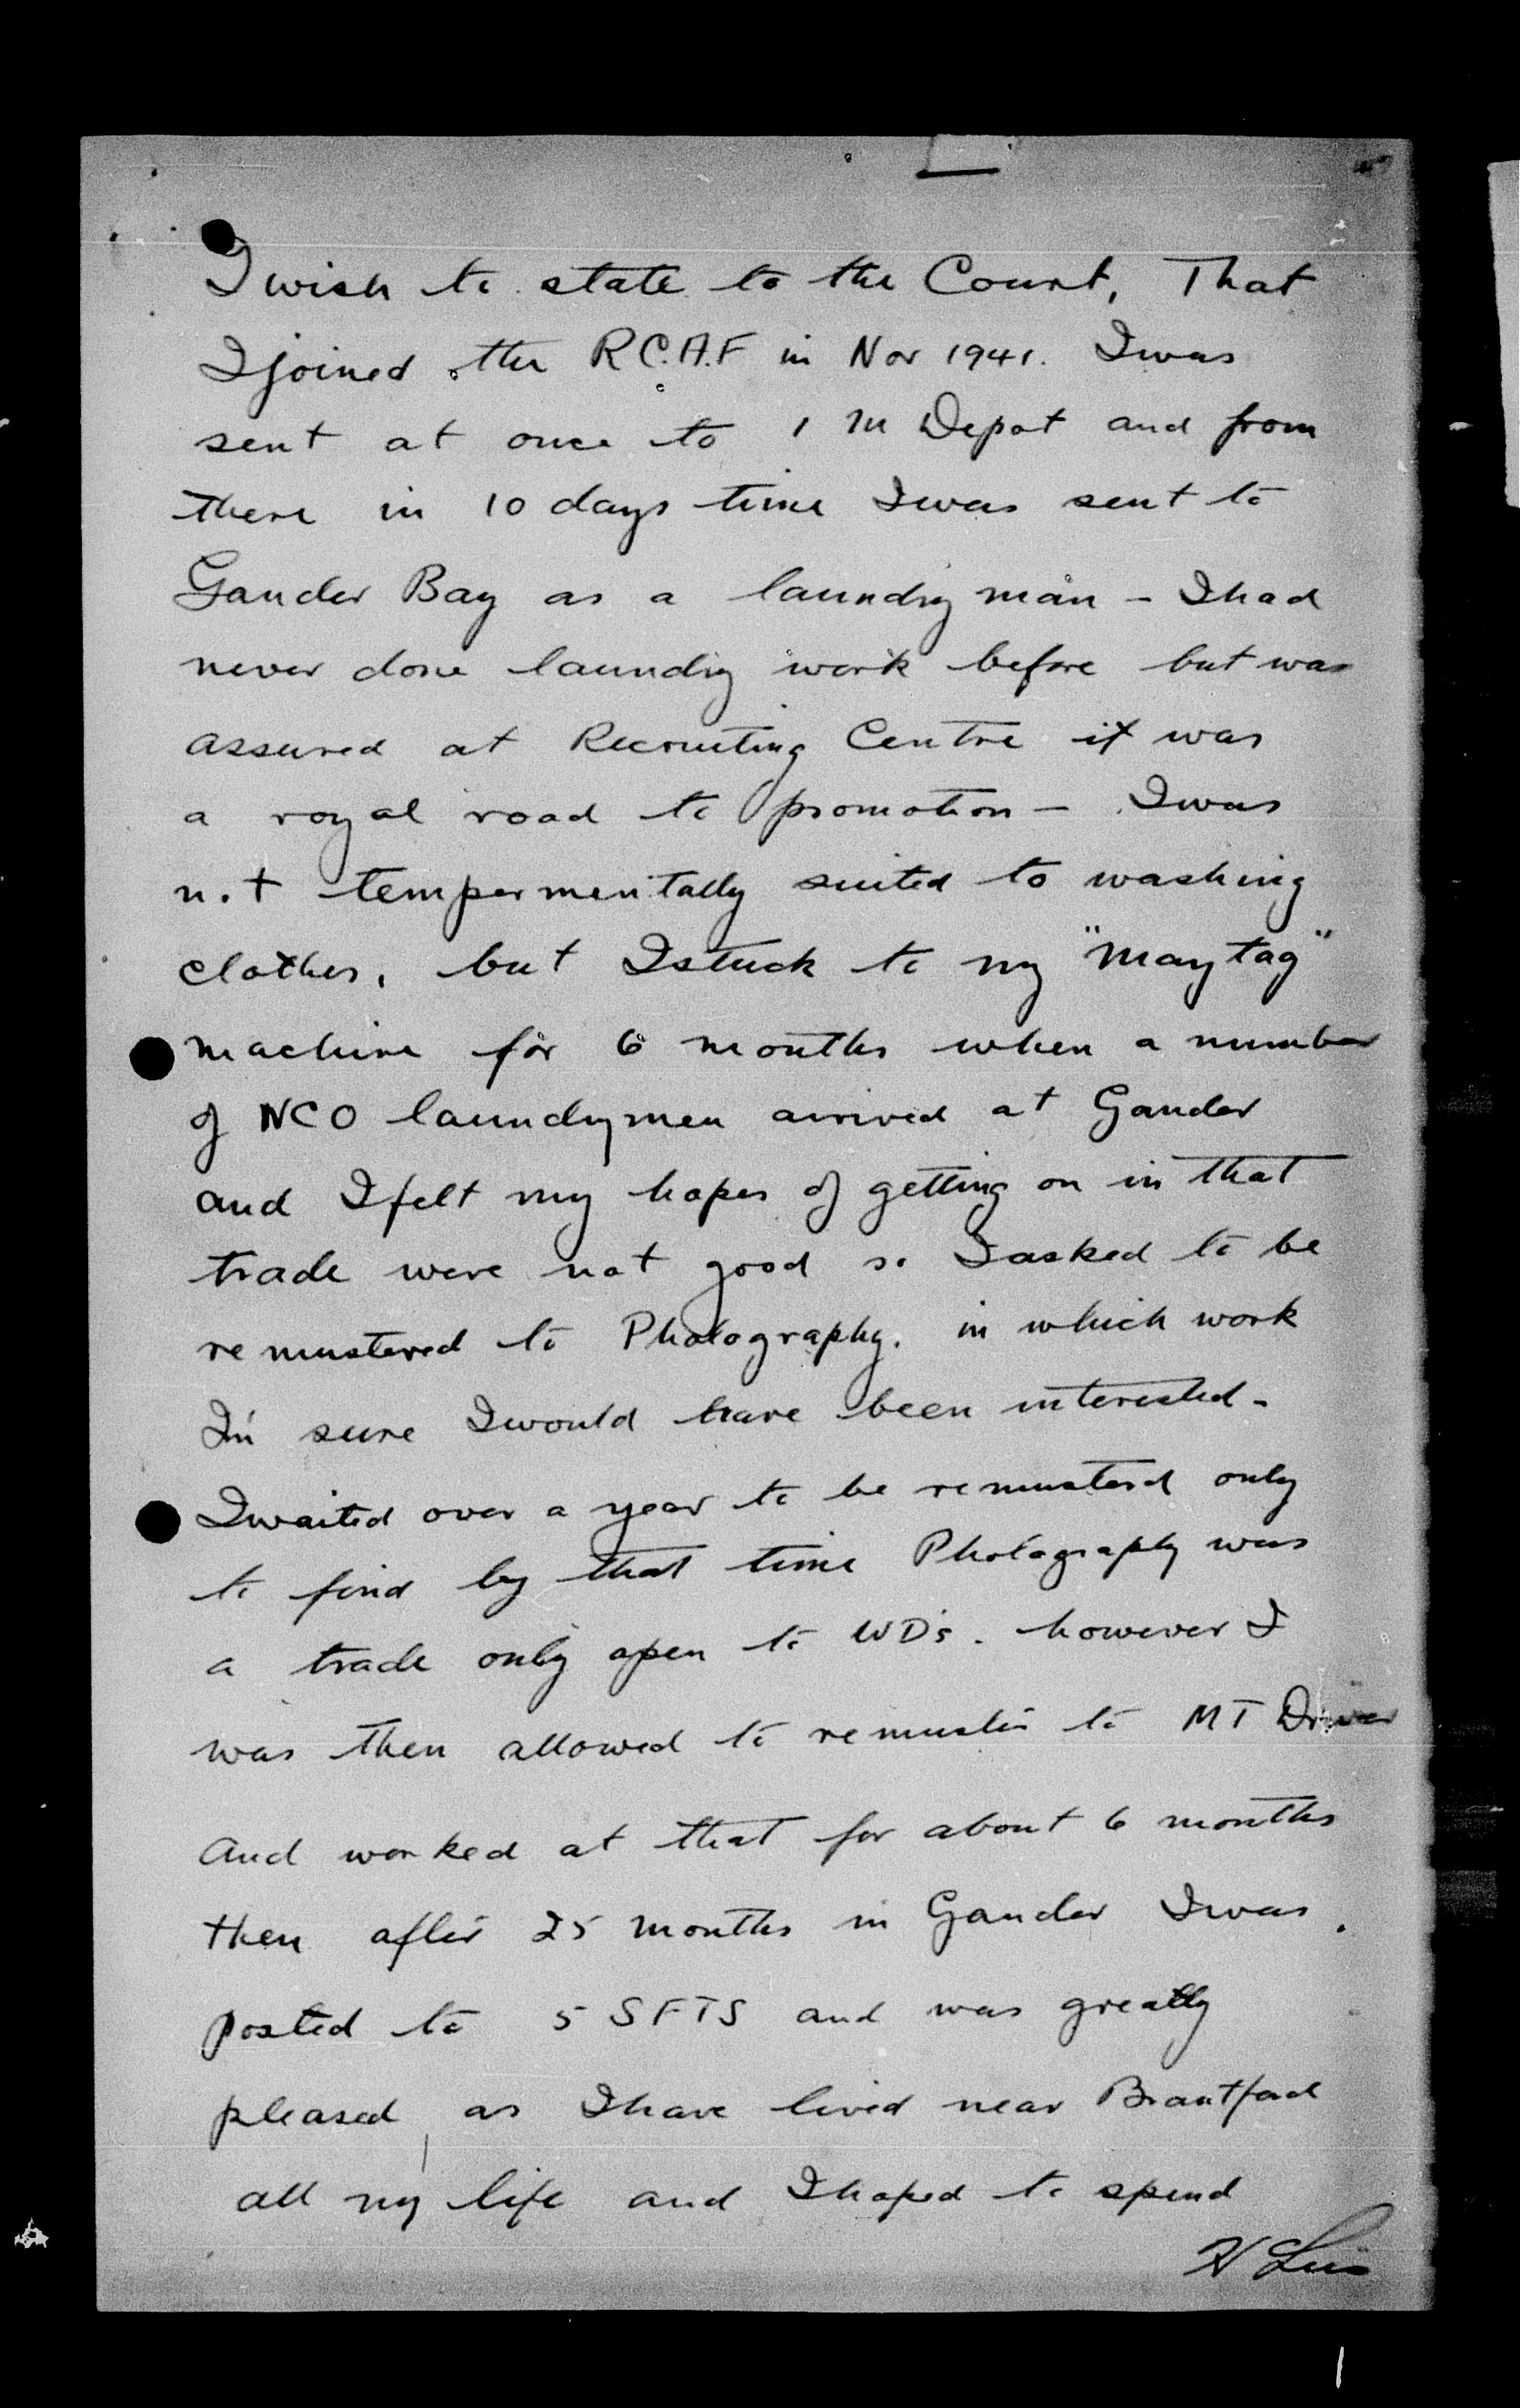 I wish to state to the Court, That
I joined the R.C.A.F in Nov 1941. I was
sent at once to 1 M Depot and from
there in 10 days time I was sent to
Gander Bay as a laundry man - I had
never done laundry work before but was
assured at Recruiting Centre it was
a royal road to promotion - I was
not tempermentally suited to washing
clothes, but I stuck to my "Maytag"
machine for 6 months when a number
of NCO laundrymen arrived at Gander
and I felt my hopes of getting on in that
trade were not good so I asked to be
remustered to Photography. in which work
I'm sure I would have been interested -
I waited over a year to be remusterd only
to find by that time Photography was
a trade only open to WD's. however I
was then allowed to remuster to MT Driver
And worked at that for about 6 months
then after 25 months in Gander I was.
posted to 5 SFTS and was greatly
pleased, as I have lived near Brantford
all my life and I hoped to spend
H